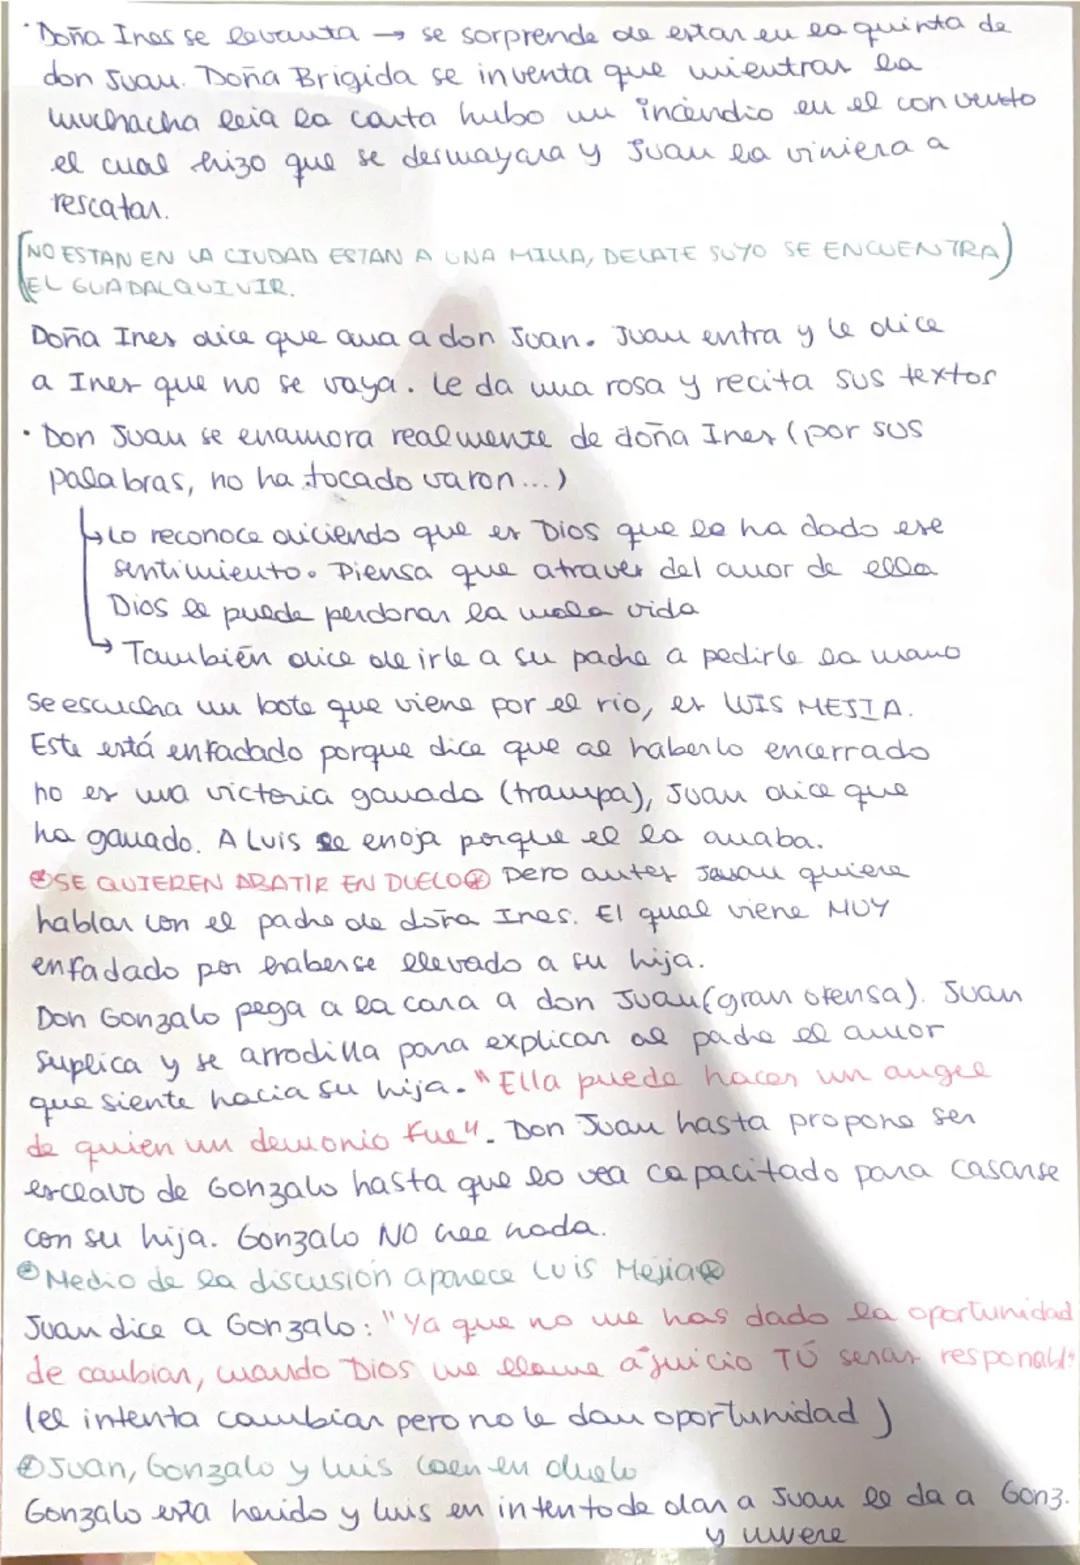 · Doña Ines se levanta → se sorprende de estar en la quinta de
don Juan. Doña Brigida se inventa que mientras la
muchacha leia la carta hubo un incendio en el convento
el cual hizo que se desmayara y Juan la viniera a
rescatar.
(NO ESTAN EN LA CIUDAD ESTAN A UNA MILLA, DELATE SUYO SE ENCUENTRA)
EL GUADALQUIVIR.
Doña Ines dice que ama a don Juan. Juan entra y le dice
a Ines que no se vaya. Le da una rosa y recita sus textos
· Don Juan se enamora realmente de doña Ines (por sus
palabras, no ha tocado varon...)
↳ Lo reconoce diciendo que es Dios que le ha dado ese
sentimiento. Piensa que atraves del amor de ella
Dios le puede perdonar la mala vida
↳ También dice de irle a su padre a pedirle la mano
Se escucha un bote que viene por el rio, es LUIS MEJIA.
Este está enfadado porque dice que al haberlo encerrado
no es una victoria ganada (trampa), Juan dice que
ha ganado. A Luis le enoja porque el la amaba.
SE QUIEREN ABATIR EN DUELO Pero antes Juan quiere
hablar con el padre de doña Ines. El qual viene MUY
enfadado por haberse llevado a su hija.
Don Gonzalo pega a la cara a don Juan (gran ofensa). Juan
suplica y se arrodilla para explicar al padre el amor
que siente hacia su hija. "Ella puede hacer un angel
de quien un demonio fue". Don Juan hasta propone ser
esclavo de Gonzalo hasta que lo vea capacitado para casarse
con su hija. Gonzalo NO cree nada.
Medio de la discusión aparece Luis Mejia
Juan dice a Gonzalo: "Ya que no me has dado la oportunidad
de cambiar, cuando Dios me llame a juicio TÚ seras responabl"
(el intenta cambiar pero no le dan oportunidad)
Juan, Gonzalo y Luis caen en duelo
Gonzalo esta herido y Luis en intento de dar a Juan le da a Gonz.
y muere